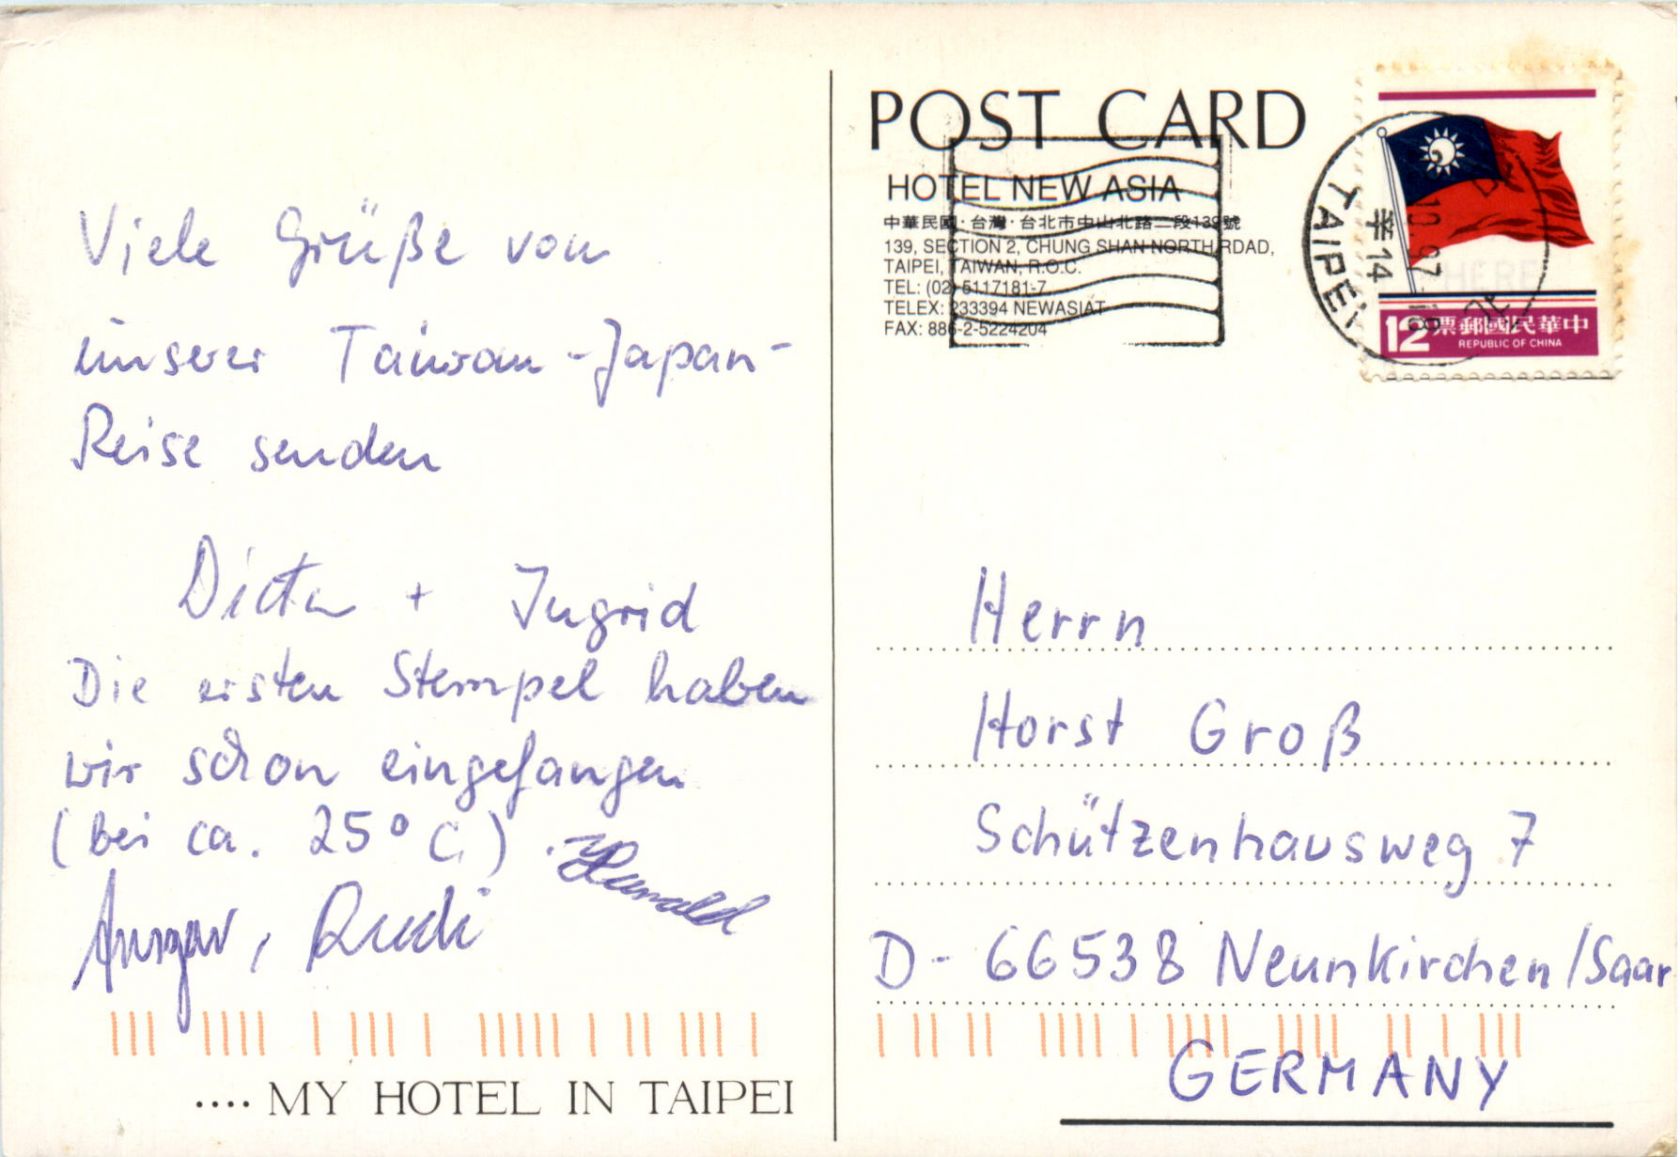 Viele Grüße von
unserer Taiwan-Japan-
Reise senden
Dieter + Ingrid
Die ersten Stempel haben
wir schon eingefangen
(bei ca. 25° C.)
Ansgar, Rudi
.... MY HOTEL IN TAIPEI
POST CARD
HOTEL NEW ASIA
中華民國·台灣·台北市中山北路二段139號
139, SECTION 2, CHUNG SHAN NORTH RDAD,
TAIPEI, TAIWAN, R.O.C.
TEL: (02) 5117181-7
TELEX: 233394 NEWASIAT
FAX: 886-2-5224204
TAIPEI
HERE
12 票郵國民華中
REPUBLIC OF CHINA
Herrn
Horst Groß
Schützenhausweg 7
D-66538 Neunkirchen/Saar
GERMANY